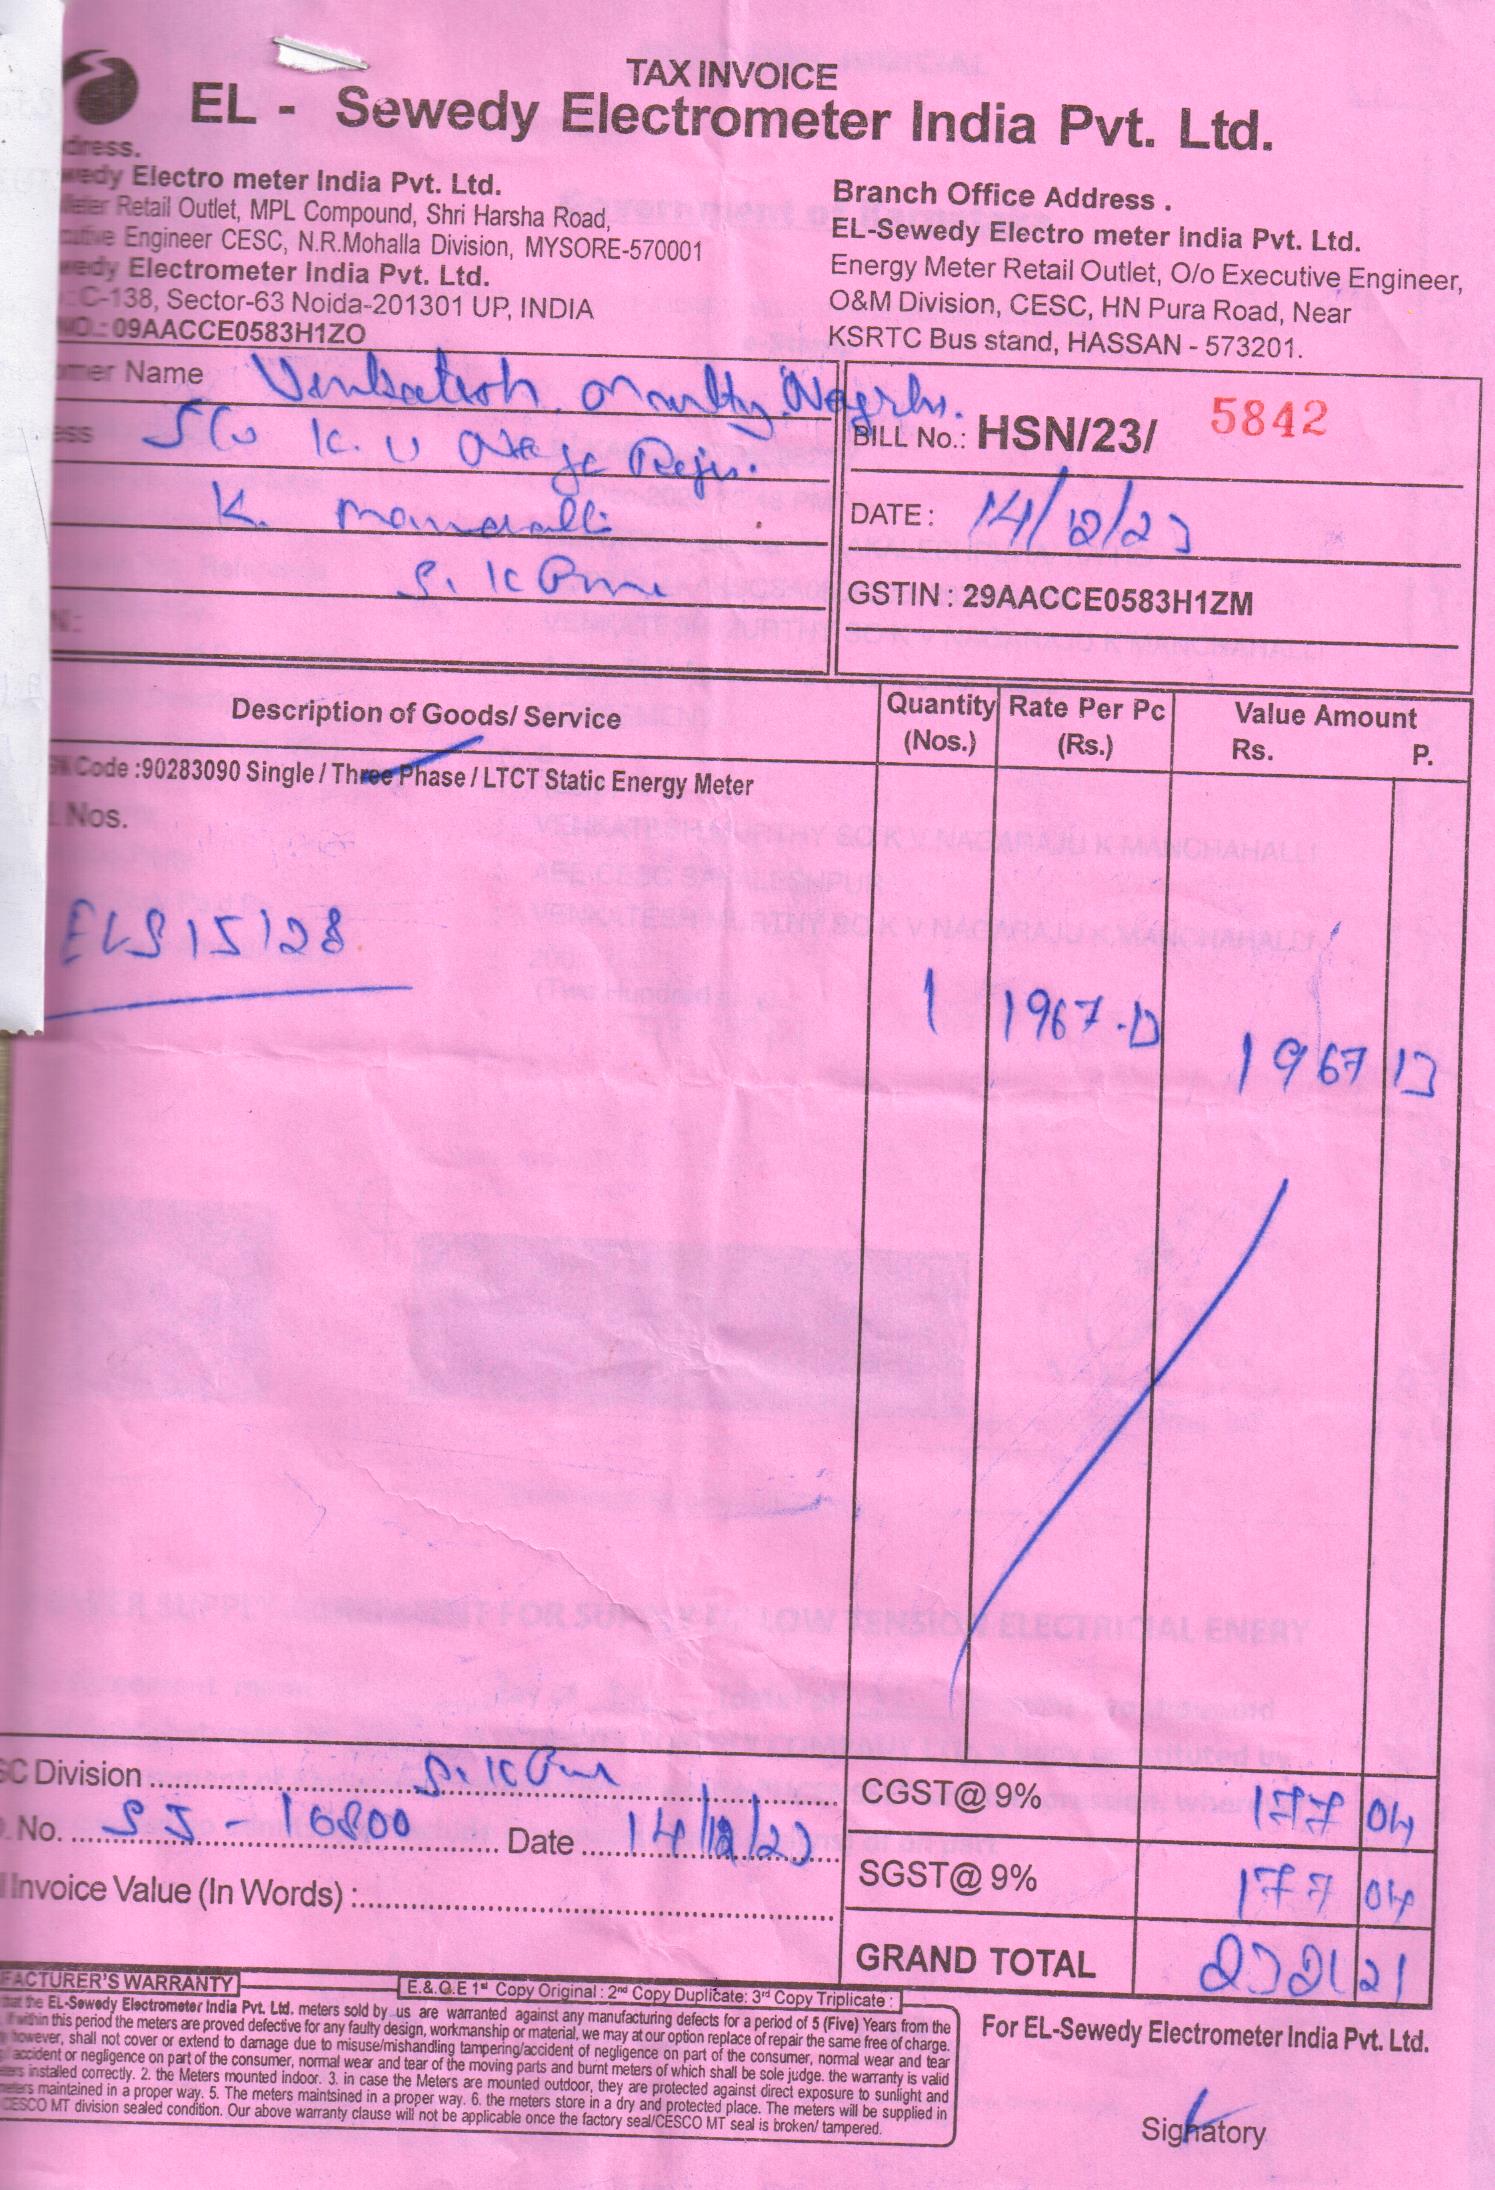 TAX INVOICE
EL - Sewedy Electrometer India Pvt. Ltd.
Electro meter India Pvt. Ltd.
Retail Outlet, MPL Compound, Shri Harsha Road,
Engineer CESC, N.R.Mohalla Division, MYSORE-570001
Electrometer India Pvt. Ltd.
C-138, Sector-63 Noida-201301 UP, INDIA
09AACCE0583H1ZO
Branch Office Address .
EL-Sewedy Electro meter India Pvt. Ltd.
Energy Meter Retail Outlet, O/o Executive Engineer,
O&M Division, CESC, HN Pura Road, Near
KSRTC Bus stand, HASSAN - 573201.
Name Venkatesh
S/o K. V
K.
S. K Pura
BILL No.: HSN/23/ 5842
DATE : 14/12/23
GSTIN : 29AACCE0583H1ZM
Description of Goods/ Service Quantity (Nos.) Rate Per Pc (Rs.) Value Amount Rs. P.
Code :90283090 Single / Three Phase / LTCT Static Energy Meter
Nos.
ELS15128 1 1967.13 1967 13
Division S. K Pura
No. SJ - 16800 Date 14/12/23
Invoice Value (In Words) :
CGST@ 9% 177 04
SGST@ 9% 177 04
GRAND TOTAL 2321 21
FACTURER'S WARRANTY E.& O.E 1st Copy Original : 2nd Copy Duplicate; 3rd Copy Triplicate :
the EL-Sewedy Electrometer India Pvt. Ltd. meters sold by us are warranted against any manufacturing defects for a period of 5 (Five) Years from the
within this period the meters are proved defective for any faulty design, workmanship or material, we may at our option replace of repair the same free of charge.
however, shall not cover or extend to damage due to misuse/mishandling tampering/accident of negligence on part of the consumer, normal wear and tear
accident or negligence on part of the consumer, normal wear and tear of the moving parts and burnt meters of which shall be sole judge. the warranty is valid
installed correctly. 2. the Meters mounted indoor. 3. in case the Meters are mounted outdoor, they are protected against direct exposure to sunlight and
maintained in a proper way. 5. The meters maintsined in a proper way. 6. the meters store in a dry and protected place. The meters will be supplied in
CESCO MT division sealed condition. Our above warranty clause will not be applicable once the factory seal/CESCO MT seal is broken/ tampered.
For EL-Sewedy Electrometer India Pvt. Ltd.
Signatory